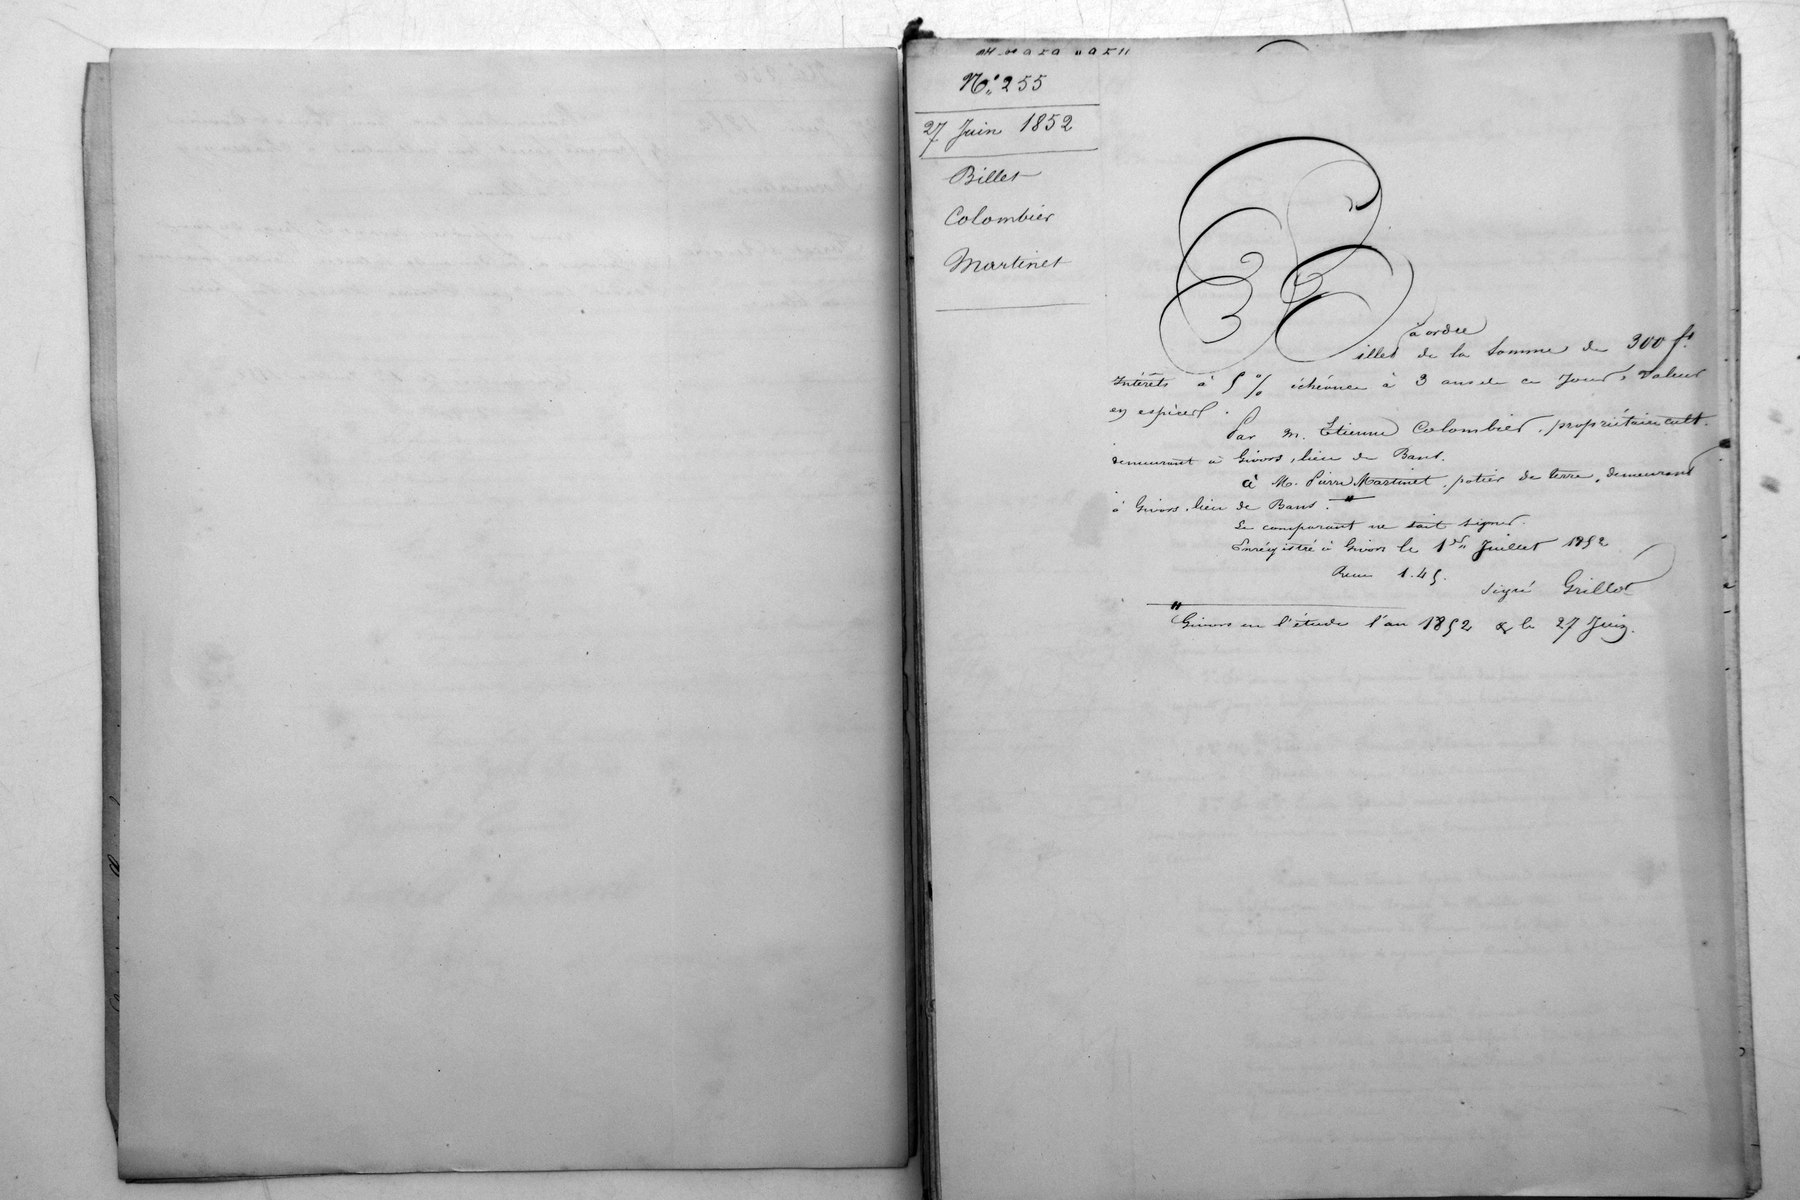 N° 255
27 Juin 1852
Billet
Colombier
Martinet
à ordre
Billet de la Somme de 300 fs
Intérêts à 5 % échéance à 3 ans de ce Jour, Valeur
en espèces.
Par M. Etienne Colombier, propriétaire cult.
demeurant à Givors, lieu de Bans.
à M. Pierre Martinet, potier de terre, demeurant
à Givors, lieu de Bans. "
Le comparant ne sait signer.
Enrégistré à Givors le 1er Juillet 1852
Reçu 1.45.
Signé Grillot
" Givors en l'étude l'an 1852 & le 27 Juin.